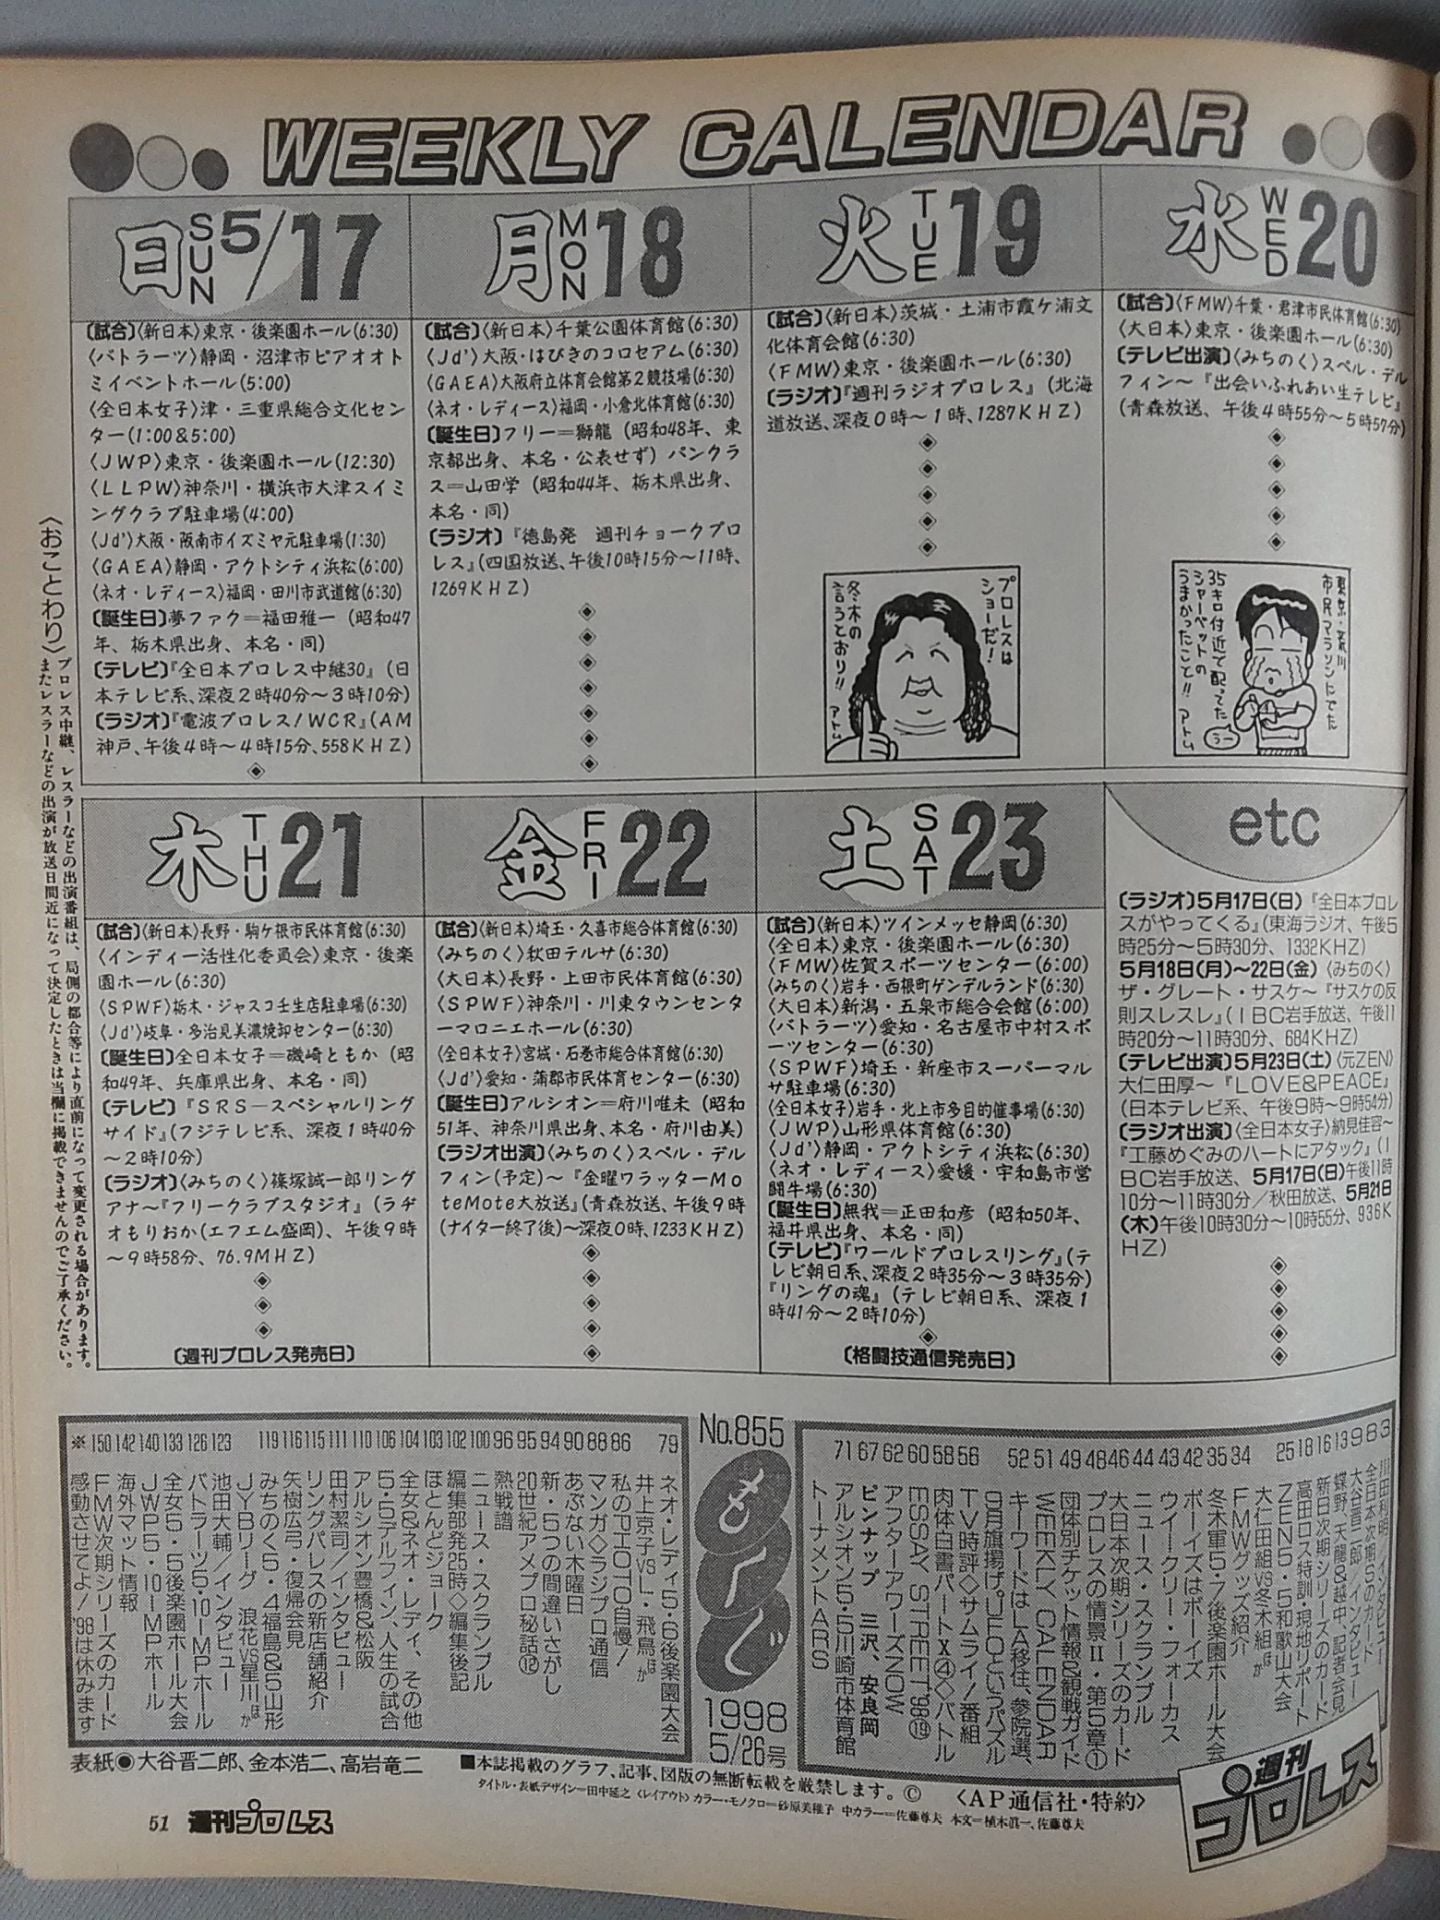 WEEKLY CALENDAR
日 SUN 5/17
〔試合〕〈新日本〉東京・後楽園ホール(6:30)
〈バトラーツ〉静岡・沼津市ピアオオト
ミイベントホール(5:00)
〈全日本女子〉津・三重県総合文化セン
ター(1:00&5:00)
〈JWP〉東京・後楽園ホール(12:30)
〈LLPW〉神奈川・横浜市大津スイミ
ングクラブ駐車場(4:00)
〈Jd'〉大阪・阪南市イズミヤ元駐車場(1:30)
〈GAEA〉静岡・アクトシティ浜松(6:00)
〈ネオ・レディース〉福岡・田川市武道館(6:30)
〔誕生日〕夢ファク=福田雅一(昭和47
年、栃木県出身、本名・同)
〔テレビ〕『全日本プロレス中継30』(日
本テレビ系、深夜2時40分〜3時10分)
〔ラジオ〕『電波プロレス!WCR』(AM
神戸、午後4時〜4時15分、558KHZ)
月 MON 18
〔試合〕〈新日本〉千葉公園体育館(6:30)
〈Jd'〉大阪・はびきのコロセアム(6:30)
〈GAEA〉大阪府立体育会館第2競技場(6:30)
〈ネオ・レディース〉福岡・小倉北体育館(6:30)
〔誕生日〕フリー=獅龍(昭和48年、東
京都出身、本名・公表せず)パンクラ
ス=山田学(昭和44年、栃木県出身、
本名・同)
〔ラジオ〕『徳島発 週刊チョークプロ
レス』(四国放送、午後10時15分〜11時、
1269KHZ)
火 TUE 19
〔試合〕〈新日本〉茨城・土浦市霞ケ浦文
化体育会館(6:30)
〈FMW〉東京・後楽園ホール(6:30)
〔ラジオ〕『週刊ラジオプロレス』(北海
道放送、深夜0時〜1時、1287KHZ)
プロレスは
ショーだ!
冬木の
言うとおり!!
アトム
水 WED 20
〔試合〕〈FMW〉千葉・君津市民体育館(6:30)
〈大日本〉東京・後楽園ホール(6:30)
〔テレビ出演〕〈みちのく〉スペル・デル
フィン〜『出会いふれあい生テレビ』
(青森放送、午後4時55分〜5時57分)
東京・荒川
市民マラソンにでた
35キロ付近で配ってた
シャーベットの
うまかったこと!!
アトム
うー
〈おことわり〉プロレス中継、レスラーなどの出演番組は、局側の都合等により直前になって変更される場合があります。
またレスラーなどの出演が放送日間近になって決定したときは当欄に掲載できませんのでご了承ください。
木 THU 21
〔試合〕〈新日本〉長野・駒ケ根市民体育館(6:30)
〈インディー活性化委員会〉東京・後楽
園ホール(6:30)
〈SPWF〉栃木・ジャスコ壬生店駐車場(6:30)
〈Jd'〉岐阜・多治見美濃焼卸センター(6:30)
〔誕生日〕全日本女子=磯崎ともか(昭
和49年、兵庫県出身、本名・同)
〔テレビ〕『SRS―スペシャルリング
サイド』(フジテレビ系、深夜1時40分
〜2時10分)
〔ラジオ〕〈みちのく〉篠塚誠一郎リング
アナ〜『フリークラブスタジオ』(ラヂ
オもりおか(エフエム盛岡)、午後9時
〜9時58分、76.9MHZ)
〔週刊プロレス発売日〕
金 FRI 22
〔試合〕〈新日本〉埼玉・久喜市総合体育館(6:30)
〈みちのく〉秋田テルサ(6:30)
〈大日本〉長野・上田市民体育館(6:30)
〈SPWF〉神奈川・川東タウンセンタ
ーマロニエホール(6:30)
〈全日本女子〉宮城・石巻市総合体育館(6:30)
〈Jd'〉愛知・蒲郡市民体育センター(6:30)
〔誕生日〕アルシオン=府川唯未(昭和
51年、神奈川県出身、本名・府川由美)
〔ラジオ出演〕〈みちのく〉スペル・デル
フィン(予定)〜『金曜ワラッターMo
teMote大放送』(青森放送、午後9時
(ナイター終了後)〜深夜0時、1233KHZ)
土 SAT 23
〔試合〕〈新日本〉ツインメッセ静岡(6:30)
〈全日本〉東京・後楽園ホール(6:30)
〈FMW〉佐賀スポーツセンター(6:00)
〈みちのく〉岩手・西根町ゲンデルランド(6:30)
〈大日本〉新潟・五泉市総合会館(6:00)
〈バトラーツ〉愛知・名古屋市中村スポ
ーツセンター(6:30)
〈SPWF〉埼玉・新座市スーパーマル
サ駐車場(6:30)
〈全日本女子〉岩手・北上市多目的催事場(6:30)
〈JWP〉山形県体育館(6:30)
〈Jd'〉静岡・アクトシティ浜松(6:30)
〈ネオ・レディース〉愛媛・宇和島市営
闘牛場(6:30)
〔誕生日〕無我=正田和彦(昭和50年、
福井県出身、本名・同)
〔テレビ〕『ワールドプロレスリング』(テ
レビ朝日系、深夜2時35分〜3時35分)
『リングの魂』(テレビ朝日系、深夜1
時41分〜2時10分)
〔格闘技通信発売日〕
etc
〔ラジオ〕5月17日(日)『全日本プロレ
スがやってくる』(東海ラジオ、午後5
時25分〜5時30分、1332KHZ)
5月18日(月)〜22日(金)〈みちのく〉
ザ・グレート・サスケ〜『サスケの反
則スレスレ』(IBC岩手放送、午後11
時20分〜11時30分、684KHZ)
〔テレビ出演〕5月23日(土)〈元ZEN〉
大仁田厚〜『LOVE&PEACE』
(日本テレビ系、午後9時〜9時54分)
〔ラジオ出演〕〈全日本女子〉納見佳容〜
『工藤めぐみのハートにアタック』(I
BC岩手放送、5月17日(日)午後11時
10分〜11時30分/秋田放送、5月21日
(木)午後10時30分〜10時55分、936K
HZ)
No.855
もくじ
1998
5/26号
3 川田利明/インタビュー
8 全日本次期シリーズのカード
9 大谷晋二郎/インタビュー
13 蝶野、天龍&越中、記者会見
16 新日本次期シリーズのカード
18 高田ロス特訓・現地リポート
25 ZEN5・5和歌山大会
大仁田組VS冬木組ほか
34 FMWグッズ紹介
35 冬木軍5・7後楽園ホール大会
42 ボーイズはボーイズ
43 ウイークリー・フォーカス
44 ニュース・スクランブル
46 大日本次期シリーズのカード
48 プロレスの情景II・第5章①
49 団体別チケット情報&観戦ガイド
51 WEEKLY CALENDAR
52 キーワードはLA移住、参院選、
56 TV時評◇サムライ!番組
58 肉体白書パートX④◇バトル
60 ESSAY STREET'98⑲
62 アフター・アワーズNOW
67 ピンナップ 三沢、安良岡
71 アルシオン5・5川崎市体育館
トーナメントARS
79 ネオ・レディ5・6後楽園大会
井上京子VSL・飛鳥ほか
86 私のPHOTO自慢!
88 マンガ◇ラジプロ通信
90 あぶない木曜日
94 新・5つの間違いさがし
95 20世紀アメプロ秘話⑫
96 熱戦譜
100 ニュース・スクランブル
102 編集部発25時◇編集後記
103 ほとんどジョーク
104 全女&ネオ・レディ、その他
106 5・5デルフィン、人生の試合
110 アルシオン豊橋&松阪
111 田村潔司/インタビュー
115 リングパレスの新店舗紹介
116 矢樹広弓・復帰会見
119 みちのく5・4福島&5山形
JYBリーグ 浪花VS星川ほか
123 池田大輔/インタビュー
126 バトラーツ5・10IMPホール
133 全女5・5後楽園ホール大会
140 JWP5・10IMPホール
142 海外マット情報
150 FMW次期シリーズのカード
※ 感動させてよ!'98は休みます
表紙●大谷晋二郎、金本浩二、高岩竜二
■本誌掲載のグラフ、記事、図版の無断転載を厳禁します。© 〈AP通信社・特約〉
タイトル・表紙デザイン=田中延之 〈レイアウト〉カラー・モノクロ=砂原美稚子 中カラー=佐藤尊夫 本文=植木真一、佐藤尊夫
週刊プロレス
51 週刊プロレス